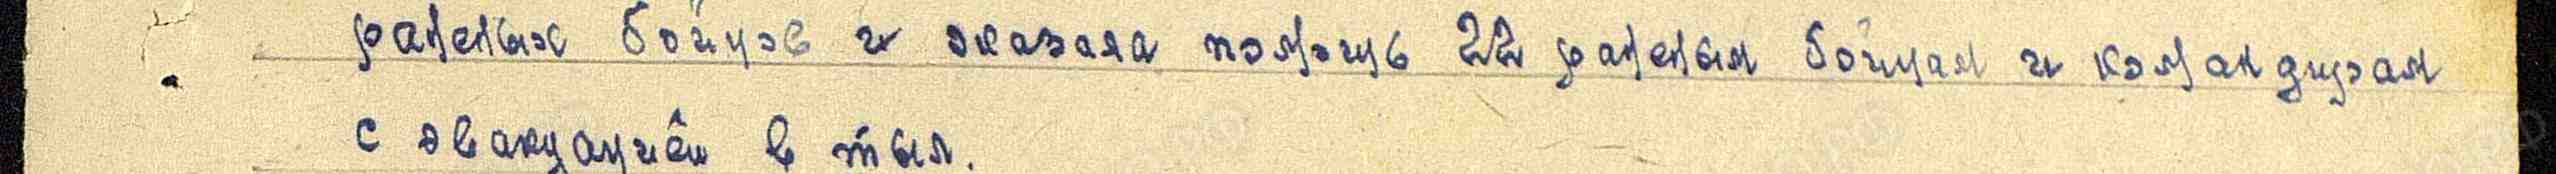 раненых бойцов и оказала помощь 22 раненым бойцам и командирам
с эвакуацией в тыл.